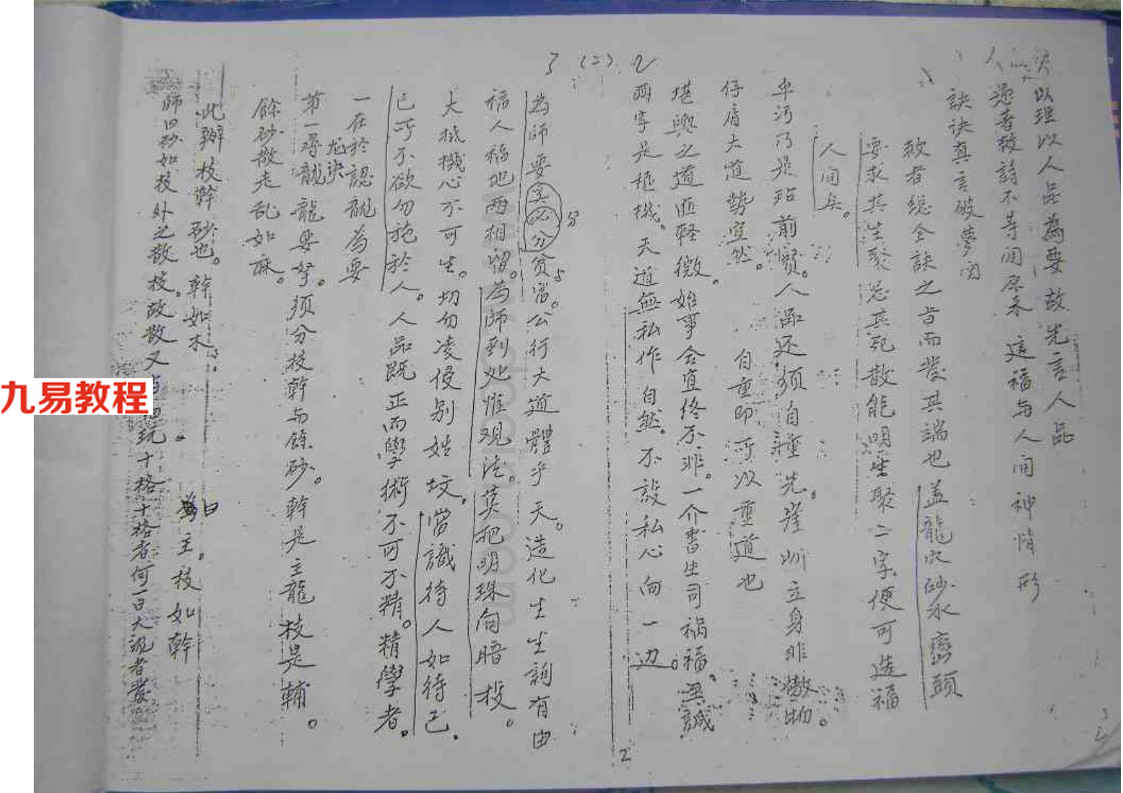 以理以人品為要故先言人品
還書被詩不等閒原来這福与人间神悄形
訣訣真言破夢
敘者総全訣之旨而發其端也盖龍穴砂水巒頭
要求其生聚忌其死散能明生聚二字便可造福
人间矣。
卑污乃是玷前贤。人品还须自重先崖训立身非傲物。
仔肩大道勢宜然。自重即可以重道也
堪輿之道匪轻微。始事会宜终不非。一介書生司祸福。誠
两字是枢機。天道無私作自然。不設私心向一边。
3 (2). 2
2
為師要分貧富。公行大道體乎天。造化生生詞有由
福人福地两相留。為師到处惟观法。莫把明珠向暗投。
大抵機心不可生。切勿凌侵别姓坟。當識待人如待己.
己所不欲勿施於人。人品既正而學術不可不精。精學者。
一在於認龍為要
龙诀
第一尋龍龍要孥。须分枝幹与餘砂。幹是主龍枝是輔。
餘砂散走乱如麻。
此辦枝幹砂也。幹如木主。枝如幹
師曰砂如枝外之散枝。故散又十格十格者何一曰大汎者發
九易教程